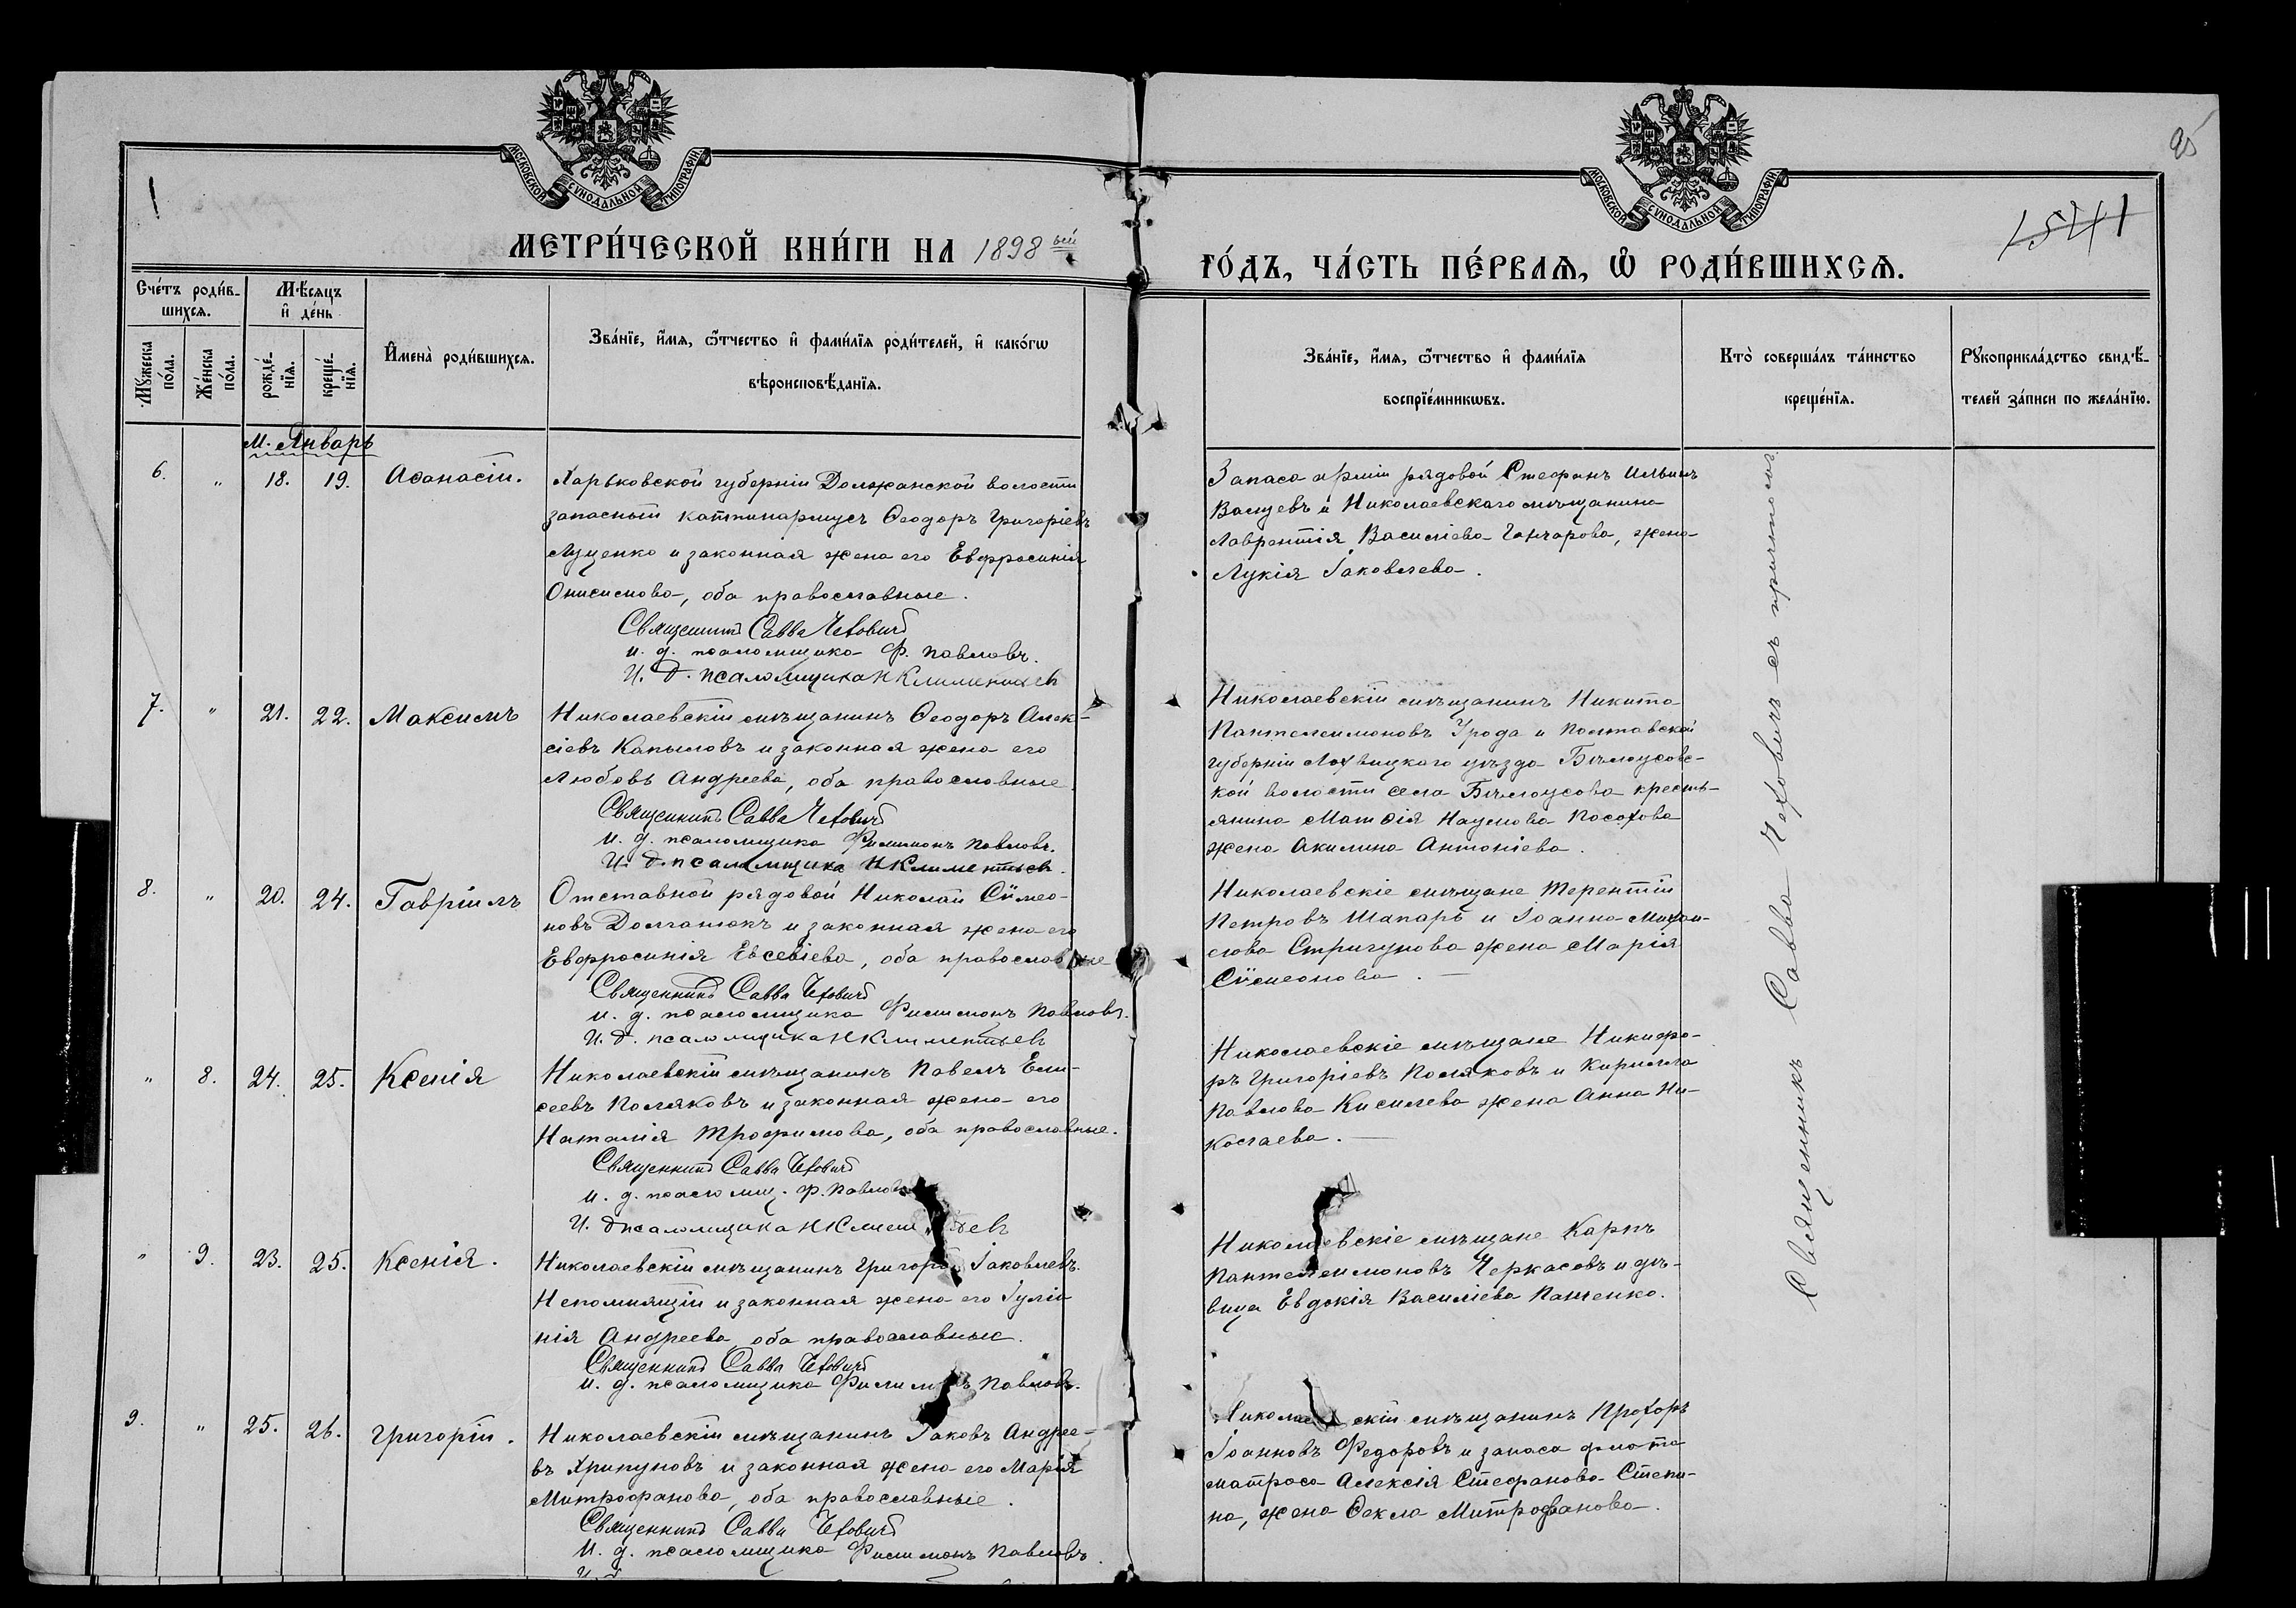 МОСКОВСКОЙ СУНОДАЛЬНОЙ ТИПОГРАФІИ
МОСКОВСКОЙ СУНОДАЛЬНОЙ ТИПОГРАФІИ
1
1541
МЕТРИ́ЧЕСКОЙ КНИ́ГИ НА 1898 ый
ГО́ДЪ, ЧА́СТЬ ПЕ́РВАѦ, Ѽ РОДИ́ВШИХСѦ.
Сче́тъ роди́вшихсѧ.
Мꙋ́жеска по́ла.
Же́нска по́ла.
Мѣ́сѧцъ и҆ де́нь
рожде́нїѧ.
креще́нїѧ.
И҆мена̀ роди́вшихсѧ.
Зва́нїе, и҆́мѧ, ѻ҆́тчество и҆ фами́лїѧ роди́телей, и҆ како́гѡ
вѣроисповѣ́данїѧ.
Зва́нїе, и҆́мѧ, ѻ҆́тчество и҆ фами́лїѧ
воспрїе́мникѡвъ.
Кто̀ соверша́лъ та́инство
креще́нїѧ.
Рꙋкоприкла́дство свидѣ́-
телей за́писи по жела́нїю.
М. Январь
6. " 18. 19. Аѳанасій.
Харьковской губерніи Должанской волости
запасный каптинармусъ Ѳеодоръ Григоріевъ
Луценко и законная жена его Евфросинія
Онисимова, оба православные.
Священникъ Савва Чехович
и. д. псаломщика Ф. Павловъ.
И. д. псаломщика Н Климентьев
Запаса арміи рядовой Стефанъ Ильинъ
Ванцевъ и Николаевскаго мѣщанина
Лаврентія Василіева Гончарова, жена
Лукія Іаковлева.
7. " 21. 22. Максимъ
Николаевскій мѣщанинъ Ѳеодоръ Алек-
сіевъ Капыловъ и законная жена его
Любовь Андреева, оба православные.
Священникъ Савва Чехович
и. д. псаломщика Филимонъ Павловъ.
И. д. псаломщика Н Климентьев.
Николаевскій мѣщанинъ Никита
Пантелеимоновъ Урода и Полтавской
губерніи Лохвицкаго уѣзда Бѣлоусовс-
кой волости села Бѣлоусова кресть-
янина Матѳія Наумова Посохова
жена Акилина Антоніева.
8. " 20. 24. Гавріилъ
Отставной рядовой Николай Сѵмео-
новъ Долганюкъ и законная жена его
Евфросинія Евсевіева, оба православные
Священникъ Савва Чехович
и. д. псаломщика Филимонъ Павловъ.
И. д. псаломщика Н Климентьев
Николаевскіе мѣщане Терентій
Петровъ Шапарь и Іоанна Михаи-
лова Стригунова жена Марія
Сѵмеонова. —
" 8. 24. 25. Ксенія
Николаевскій мѣщанинъ Павелъ Ели-
сеевъ Поляковъ и законная жена его
Наталія Трофимова, оба православные.
Священникъ Савва Чехович
и. д. псаломщ. Ф. Павловъ
И. д псаломщика Н Климентьев
Николаевскіе мѣщане Никифо-
ръ Григоріевъ Поляковъ и Кирилла
Павлова Киселева жена Анна Ни-
колаева. —
" 9. 23. 25. Ксенія.
Николаевскій мѣщанинъ Григорій Іаковлевъ
Непомнящій и законная жена его Іуліа
нія Андреева оба православные.
Священникъ Савва Чехович
и. д. псаломщика Филимонъ Павловъ.
Николаевскіе мѣщане Карпъ
Пантелеимоновъ Черкасовъ и дѣ-
вица Евдокія Василіева Пащенко.
9. " 25. 26. Григорій.
Николаевскій мѣщанинъ Іаковъ Андрее-
въ Хрипуновъ и законная жена его Марія
Митрофанова, оба православные.
Священникъ Савва Чехович
И. д. псаломщика Филимонъ Павловъ.
Николаевскій мѣщанинъ Прохоръ
Іоанновъ Федоровъ и запаса флота
матроса Алексія Стефанова Степи-
на, жена Ѳекла Митрофанова.
Священникъ Савва Чеховичъ съ причтомъ